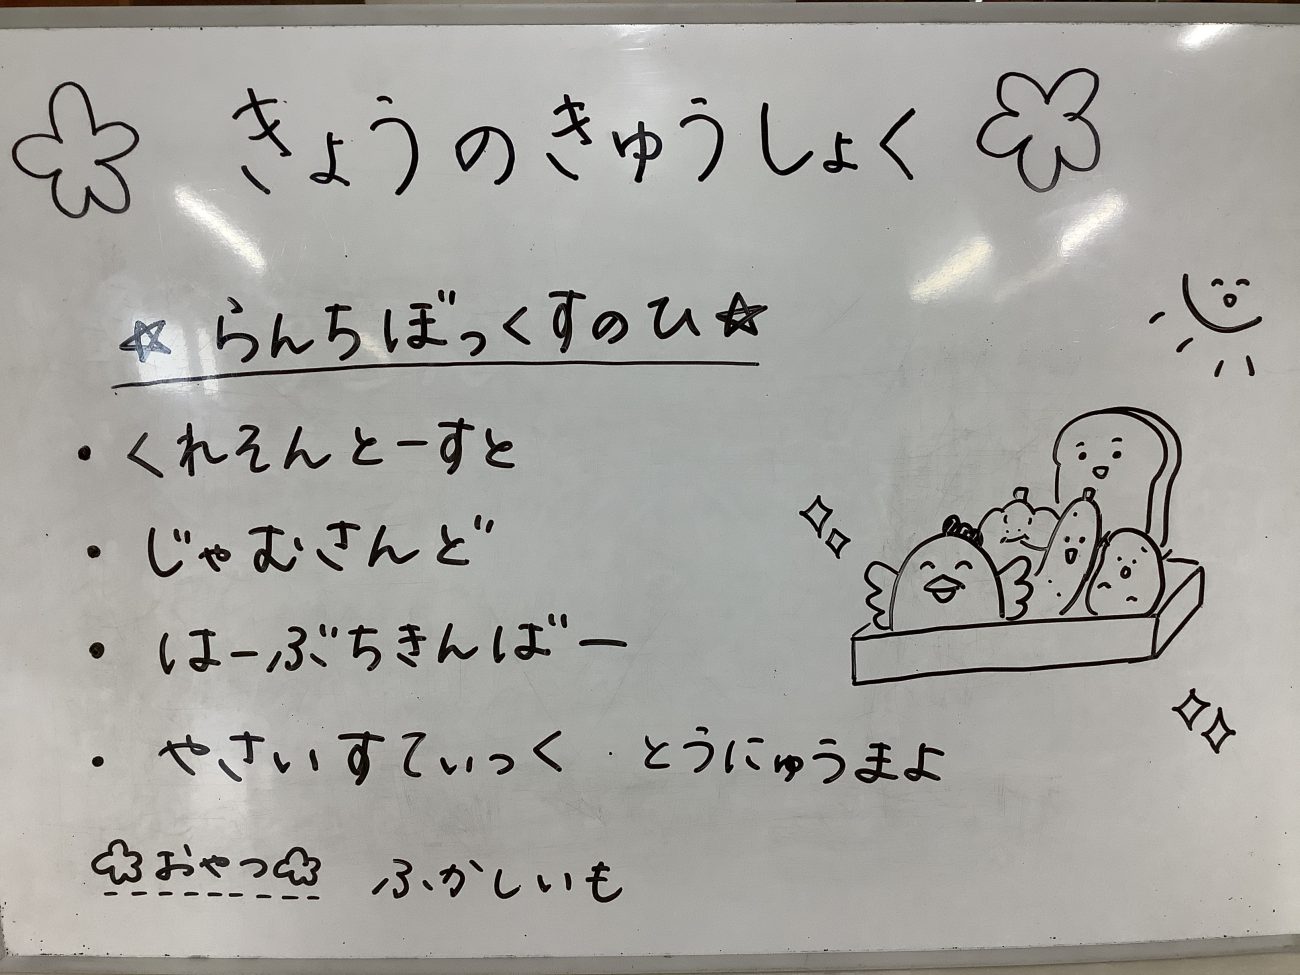 きょうのきゅうしょく
☆ らんちぼっくすのひ☆
・くれそんとーすと
・じゃむさんど
・はーぶちきんばー
・やさいすてぃっく ・とうにゅうまよ
おやつ ふかしいも